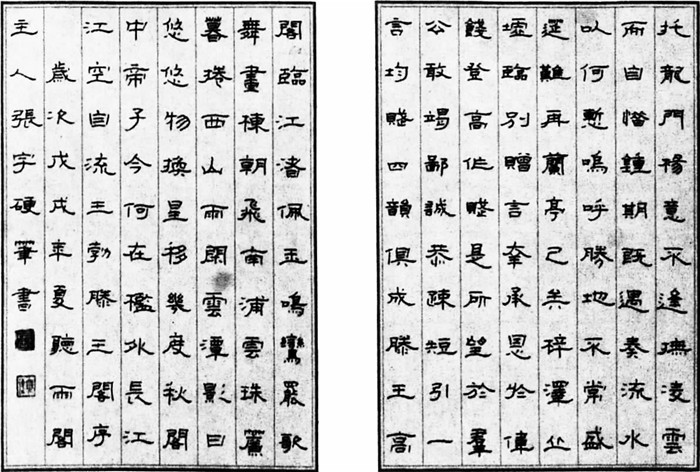 托龍門楊意不逢撫凌雲
而自惜鍾期既遇奏流水
以何慙嗚呼勝地不常盛
筵難再蘭亭已矣梓澤丘
墟臨別贈言幸承恩於偉
餞登高作賦是所望於羣
公敢竭鄙誠恭疎短引一
言均賦四韻俱成滕王高
閣臨江渚佩玉鳴鸞罷歌
舞畫棟朝飛南浦雲珠簾
暮捲西山雨閑雲潭影日
悠悠物換星移幾度秋閣
中帝子今何在檻外長江
江空自流王勃滕王閣序
歲次戊戌年夏聽雨閣
主人張字硬筆書